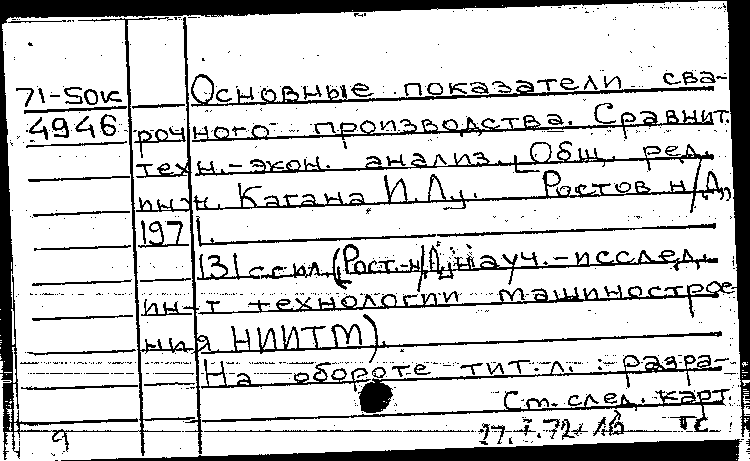 71-50к Основные показатели сва-
4946 рочного производства. Сравнит.
техн.-экон. анализ. [Общ. ред.
инж. Кагана И.Л.]. Ростов н/Д,
1971.
131 с с ил. (Рост.-н/Д. науч.-исслед.
ин-т технологии машинострое
ния НИИТМ).
На обороте тит.л.: разра-
См. след. карт.
9 27.I.72г